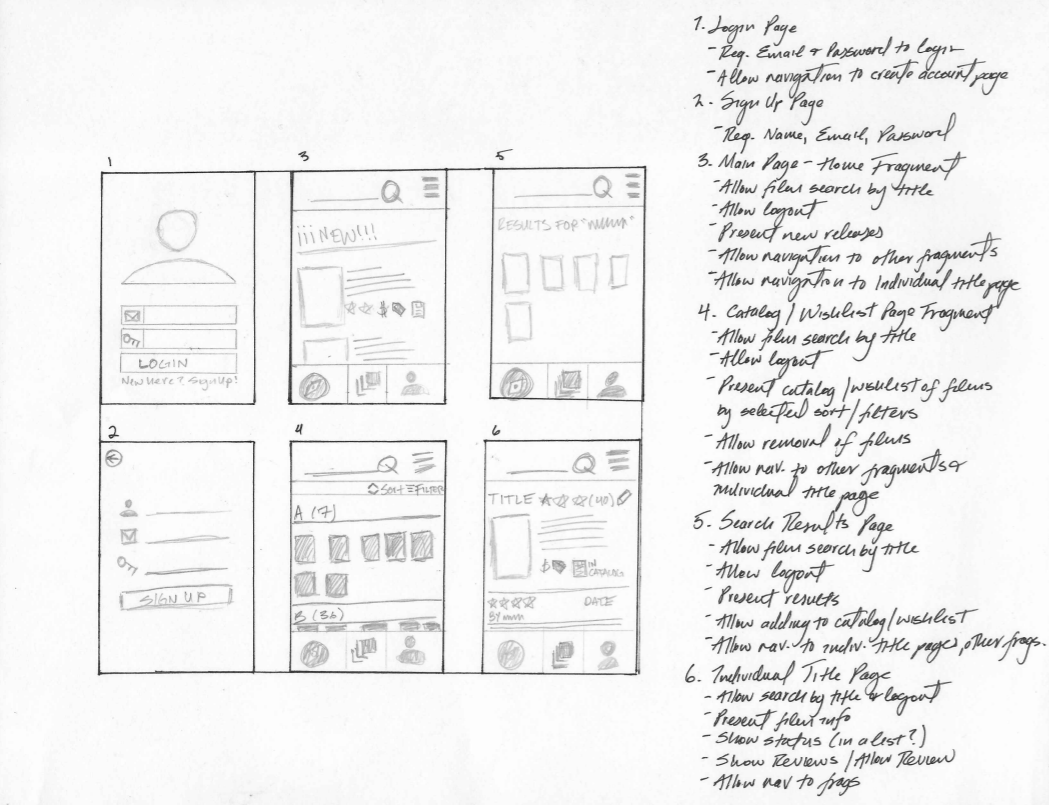 1
3
5
¡¡¡NEW!!!
RESULTS FOR "
LOGIN
New here? Sign Up!
2
4
6
SORT FILTER
A (7)
B (36)
SIGN UP
TITLE (40)
$
IN
CATALOG
DATE
BY
1. Login Page
- Req. Email & Password to login
- Allow navigation to create account page
2. Sign Up Page
- Req. Name, Email, Password
3. Main Page - Home Fragment
- Allow film search by title
- Allow logout
- Present new releases
- Allow navigation to other fragments
- Allow navigation to Individual title page
4. Catalog / Wishlist Page Fragment
- Allow film search by title
- Allow logout
- Present catalog / wishlist of films
by selected sort / filters
- Allow removal of films
- Allow nav. to other fragments &
individual title page
5. Search Results Page
- Allow film search by title
- Allow logout
- Present results
- Allow adding to catalog / wishlist
- Allow nav. to indiv. title page, other frags.
6. Individual Title Page
- Allow search by title & logout
- Present film info
- Show status (in a list?)
- Show Reviews / Allow Review
- Allow nav to frags